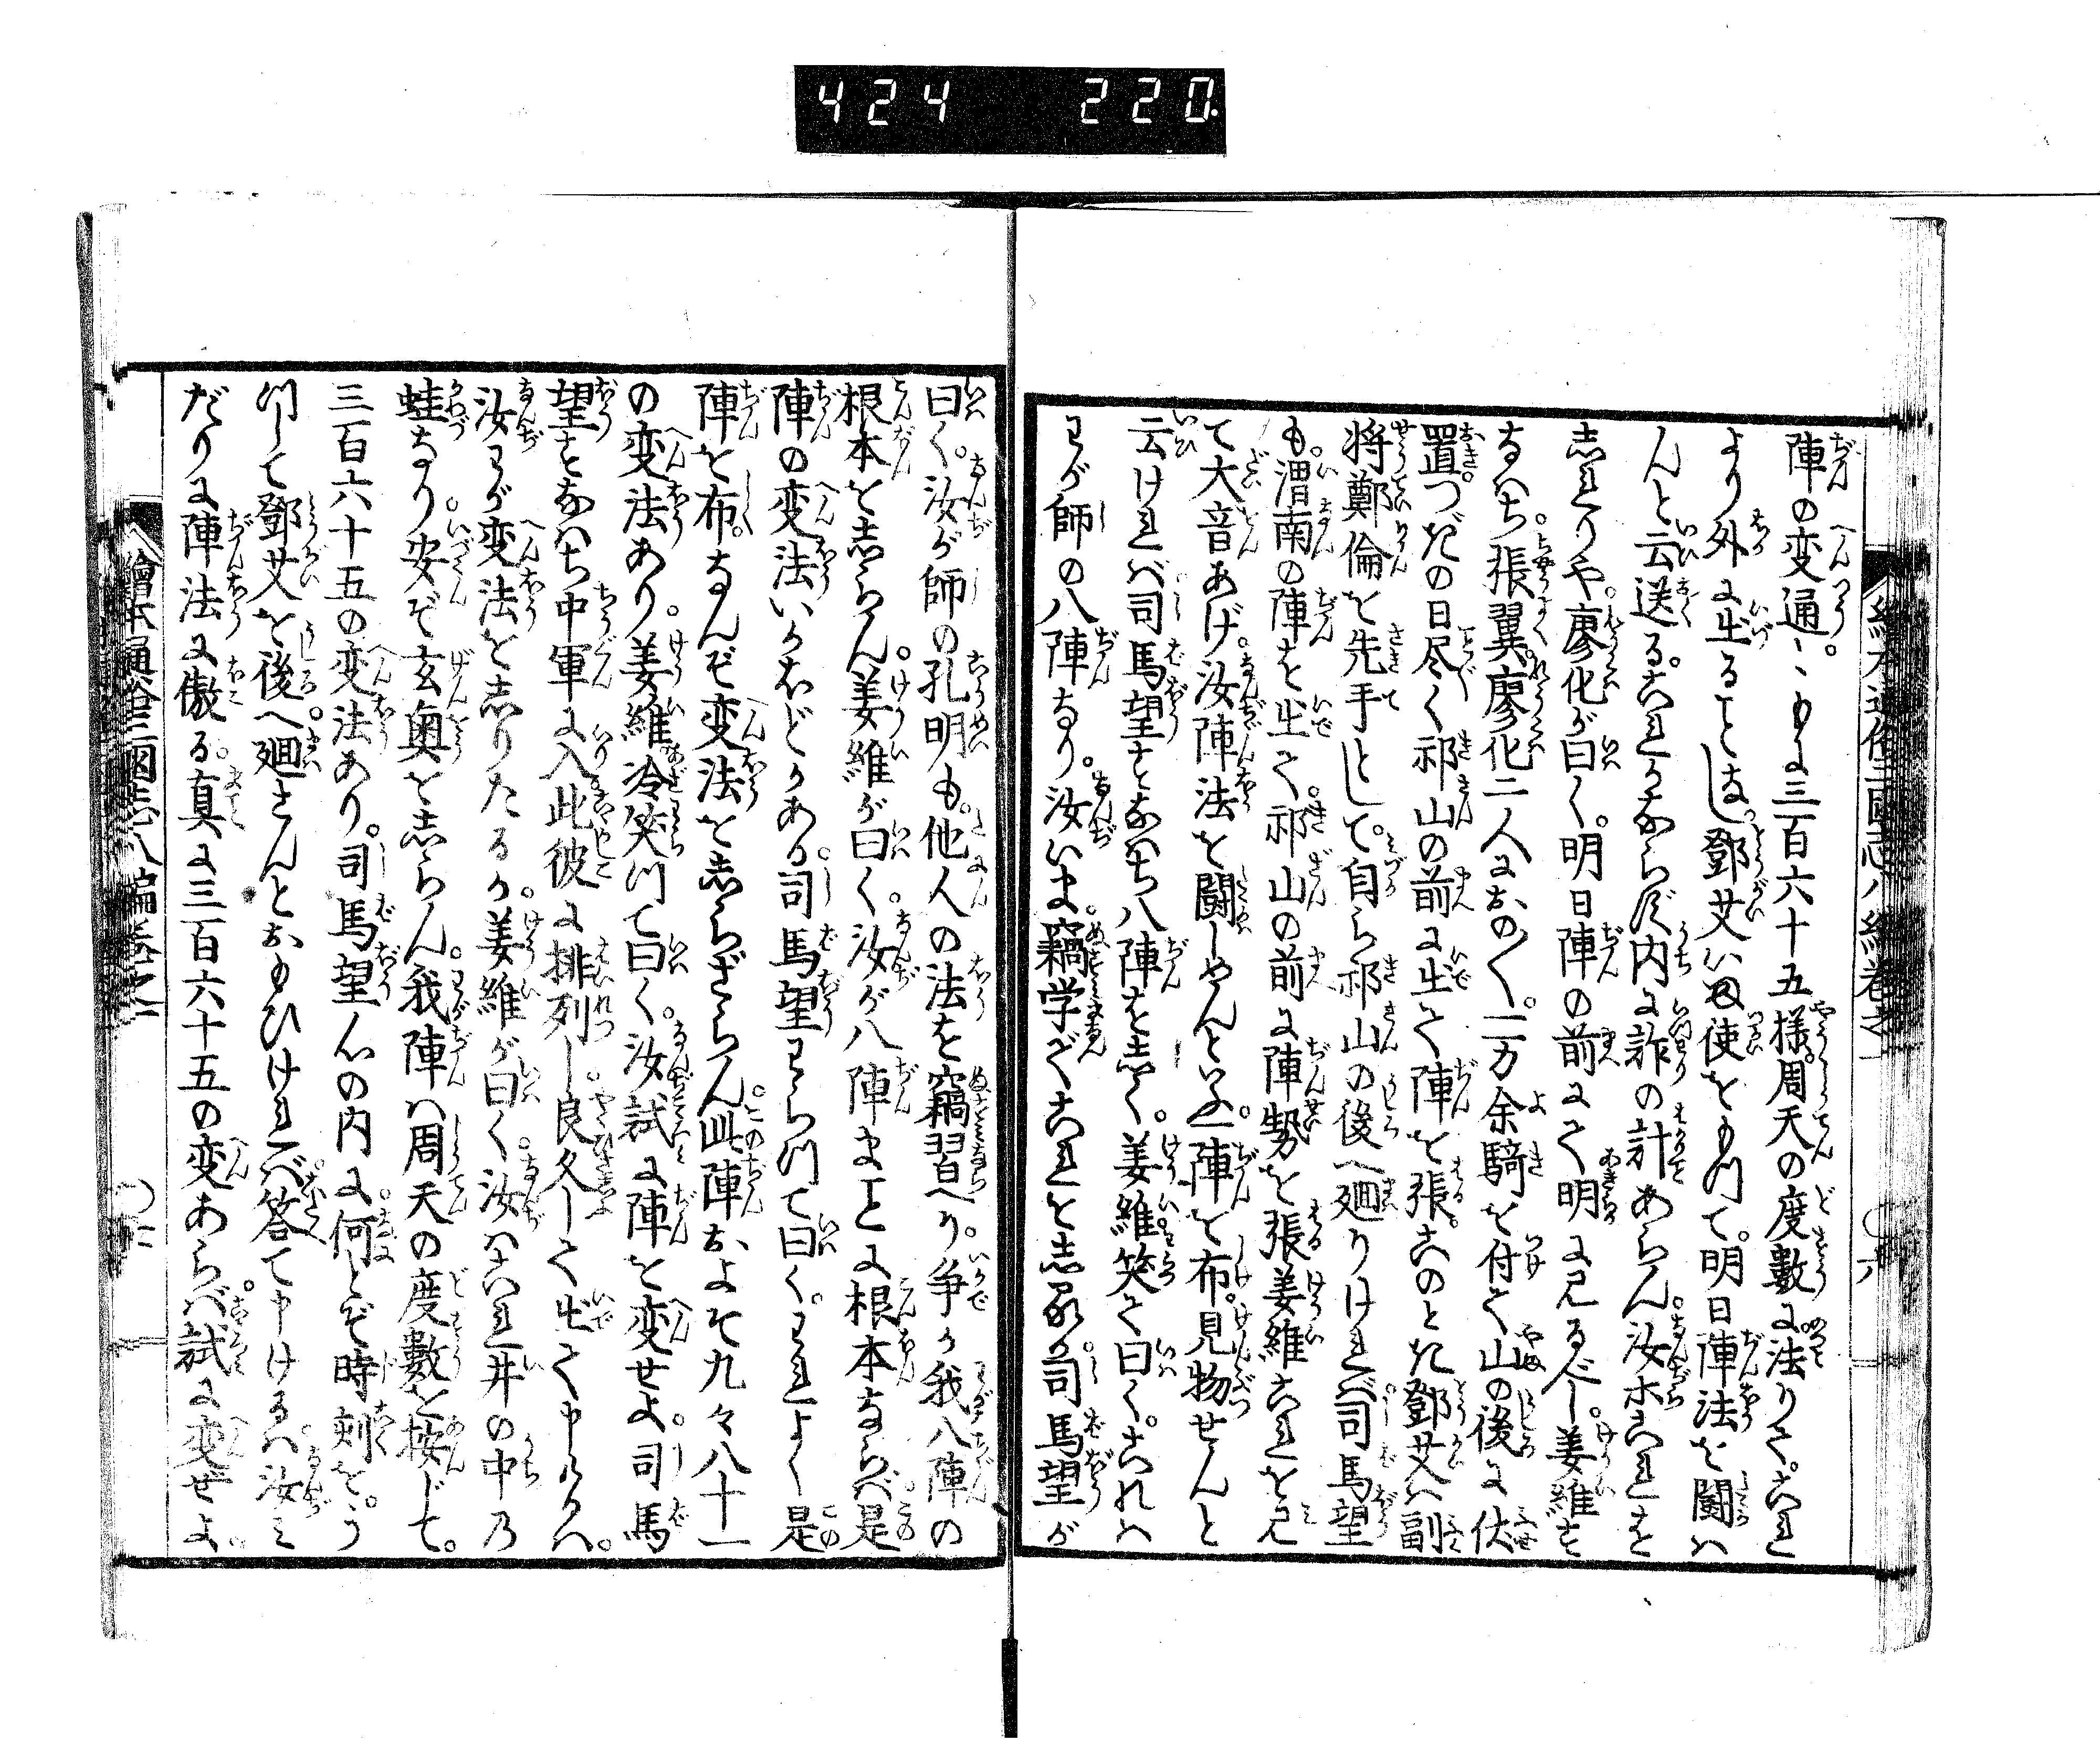 424 220
繪本通俗三國志八編巻之一
六
陣の変通〻もに三百六十五様周天の度數に法りて。これ
より外に出ることしは。鄧艾ハ使をもつて。明日陣法を闘ハ
んと云送る。これかならず内に詐の計あらん。汝ホこれを
志れりや。廖化が曰く。明日陣の前にて明に見るべし。姜維す
なハち。張翼。廖化二人におの〳〵。一万余騎を付て山の後に伏
置。つぎの日尽く祁山の前に出て陣を張。このとき鄧艾ハ副
将鄭倫を先手として。自ら祁山の後へ廻りけれバ。司馬望
も。渭南の陣を出て。祁山の前に陣勢を張。姜維これを見
て大音あげ。汝陣法を闘しめんといふ。一陣を布。見物せんと
云けれバ。司馬望すなハち八陣を志く。姜維笑て曰く。これハ
わが師の八陣なり。汝いま。竊学てこれを志る。司馬望が
曰く。汝が師の孔明も。他人の法を竊習へり。争か我八陣の
根本を志らん。姜維が曰く。汝が八陣まことに根本ならバ。是
陣の変法いかほどかある。司馬望わらつて曰く。われよく是
陣を布。なんぞ変法を志らざらん。此陣およそ九々八十一
の変法あり。姜維冷笑つて曰く。汝試に陣を変せよ。司馬
望すなハち中軍に入此彼に排列し。良久して出て申けるハ。
汝わが変法を志りたるか。姜維が曰く。汝ハこれ井の中乃
蛙なり。安ぞ玄奥を志らん。我陣ハ周天の度數を按じて。
三百六十五の変法あり。司馬望心の内に。何とぞ時刻を。う
つして鄧艾を後へ廻さんとおもひけれバ。答て申けるハ。汝ミ
だりに陣法に傲る。真に三百六十五の変あらバ。試に変ぜよ。
繪本通俗三國志八編巻之一